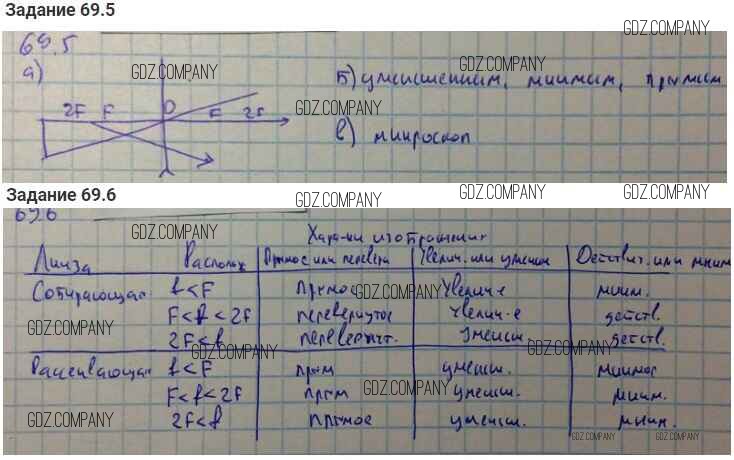 Задание 69.5
GDZ.COMPANY
69.5
GDZ.COMPANY GDZ.COMPANY GDZ.COMPANY
а)
Б) уменьшенным, мнимым, прямым
2F F O F 2F
GDZ.COMPANY
в) микроскоп
Задание 69.6
GDZ.COMPANY GDZ.COMPANY GDZ.COMPANY
69.6
GDZ.COMPANY
Линза Прямое или перевёрн Увелич. или уменьш Действит. или мним
Собирающая f<F прямое увелич-е мним.
GDZ.COMPANY GDZ.COMPANY
F<f<2F перевернутое увелич-е действ.
GDZ.COMPANY
2F<f переверн. уменьш. действ.
GDZ.COMPANY
Рассеивающая f<F прям уменьш. мнимое
F<f<2F прям уменьш. мним.
GDZ.COMPANY
2F<f прямое уменьш. мним.
GDZ.COMPANY GDZ.COMPANY GDZ.COMPANY